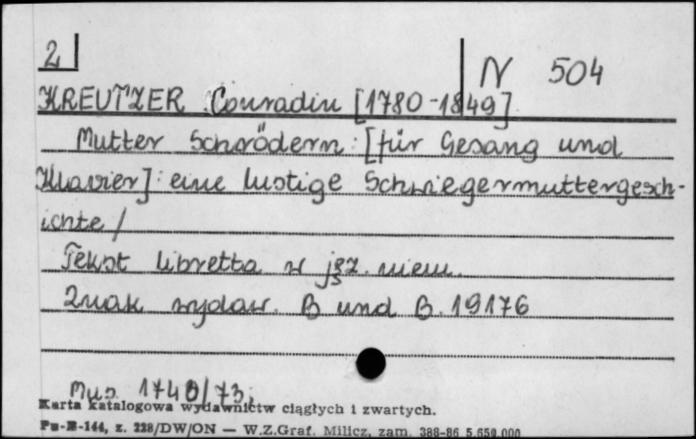 2
N 504
KREUTZER Conradin [1780-1849]
Mutter Schrödern: [für Gesang und
Klavier]: eine lustige Schwiegermuttergesch-
ichte/
Tekst libretta w jęz. niem.
Znak wydaw. B und B. 19176
Mus. 1740/73,
Karta katalogowa wydawnictw ciągłych i zwartych.
Pu-B-144, z. 228/DW/ON — W.Z.Graf. Milicz, zam. 388-86 5.650.000